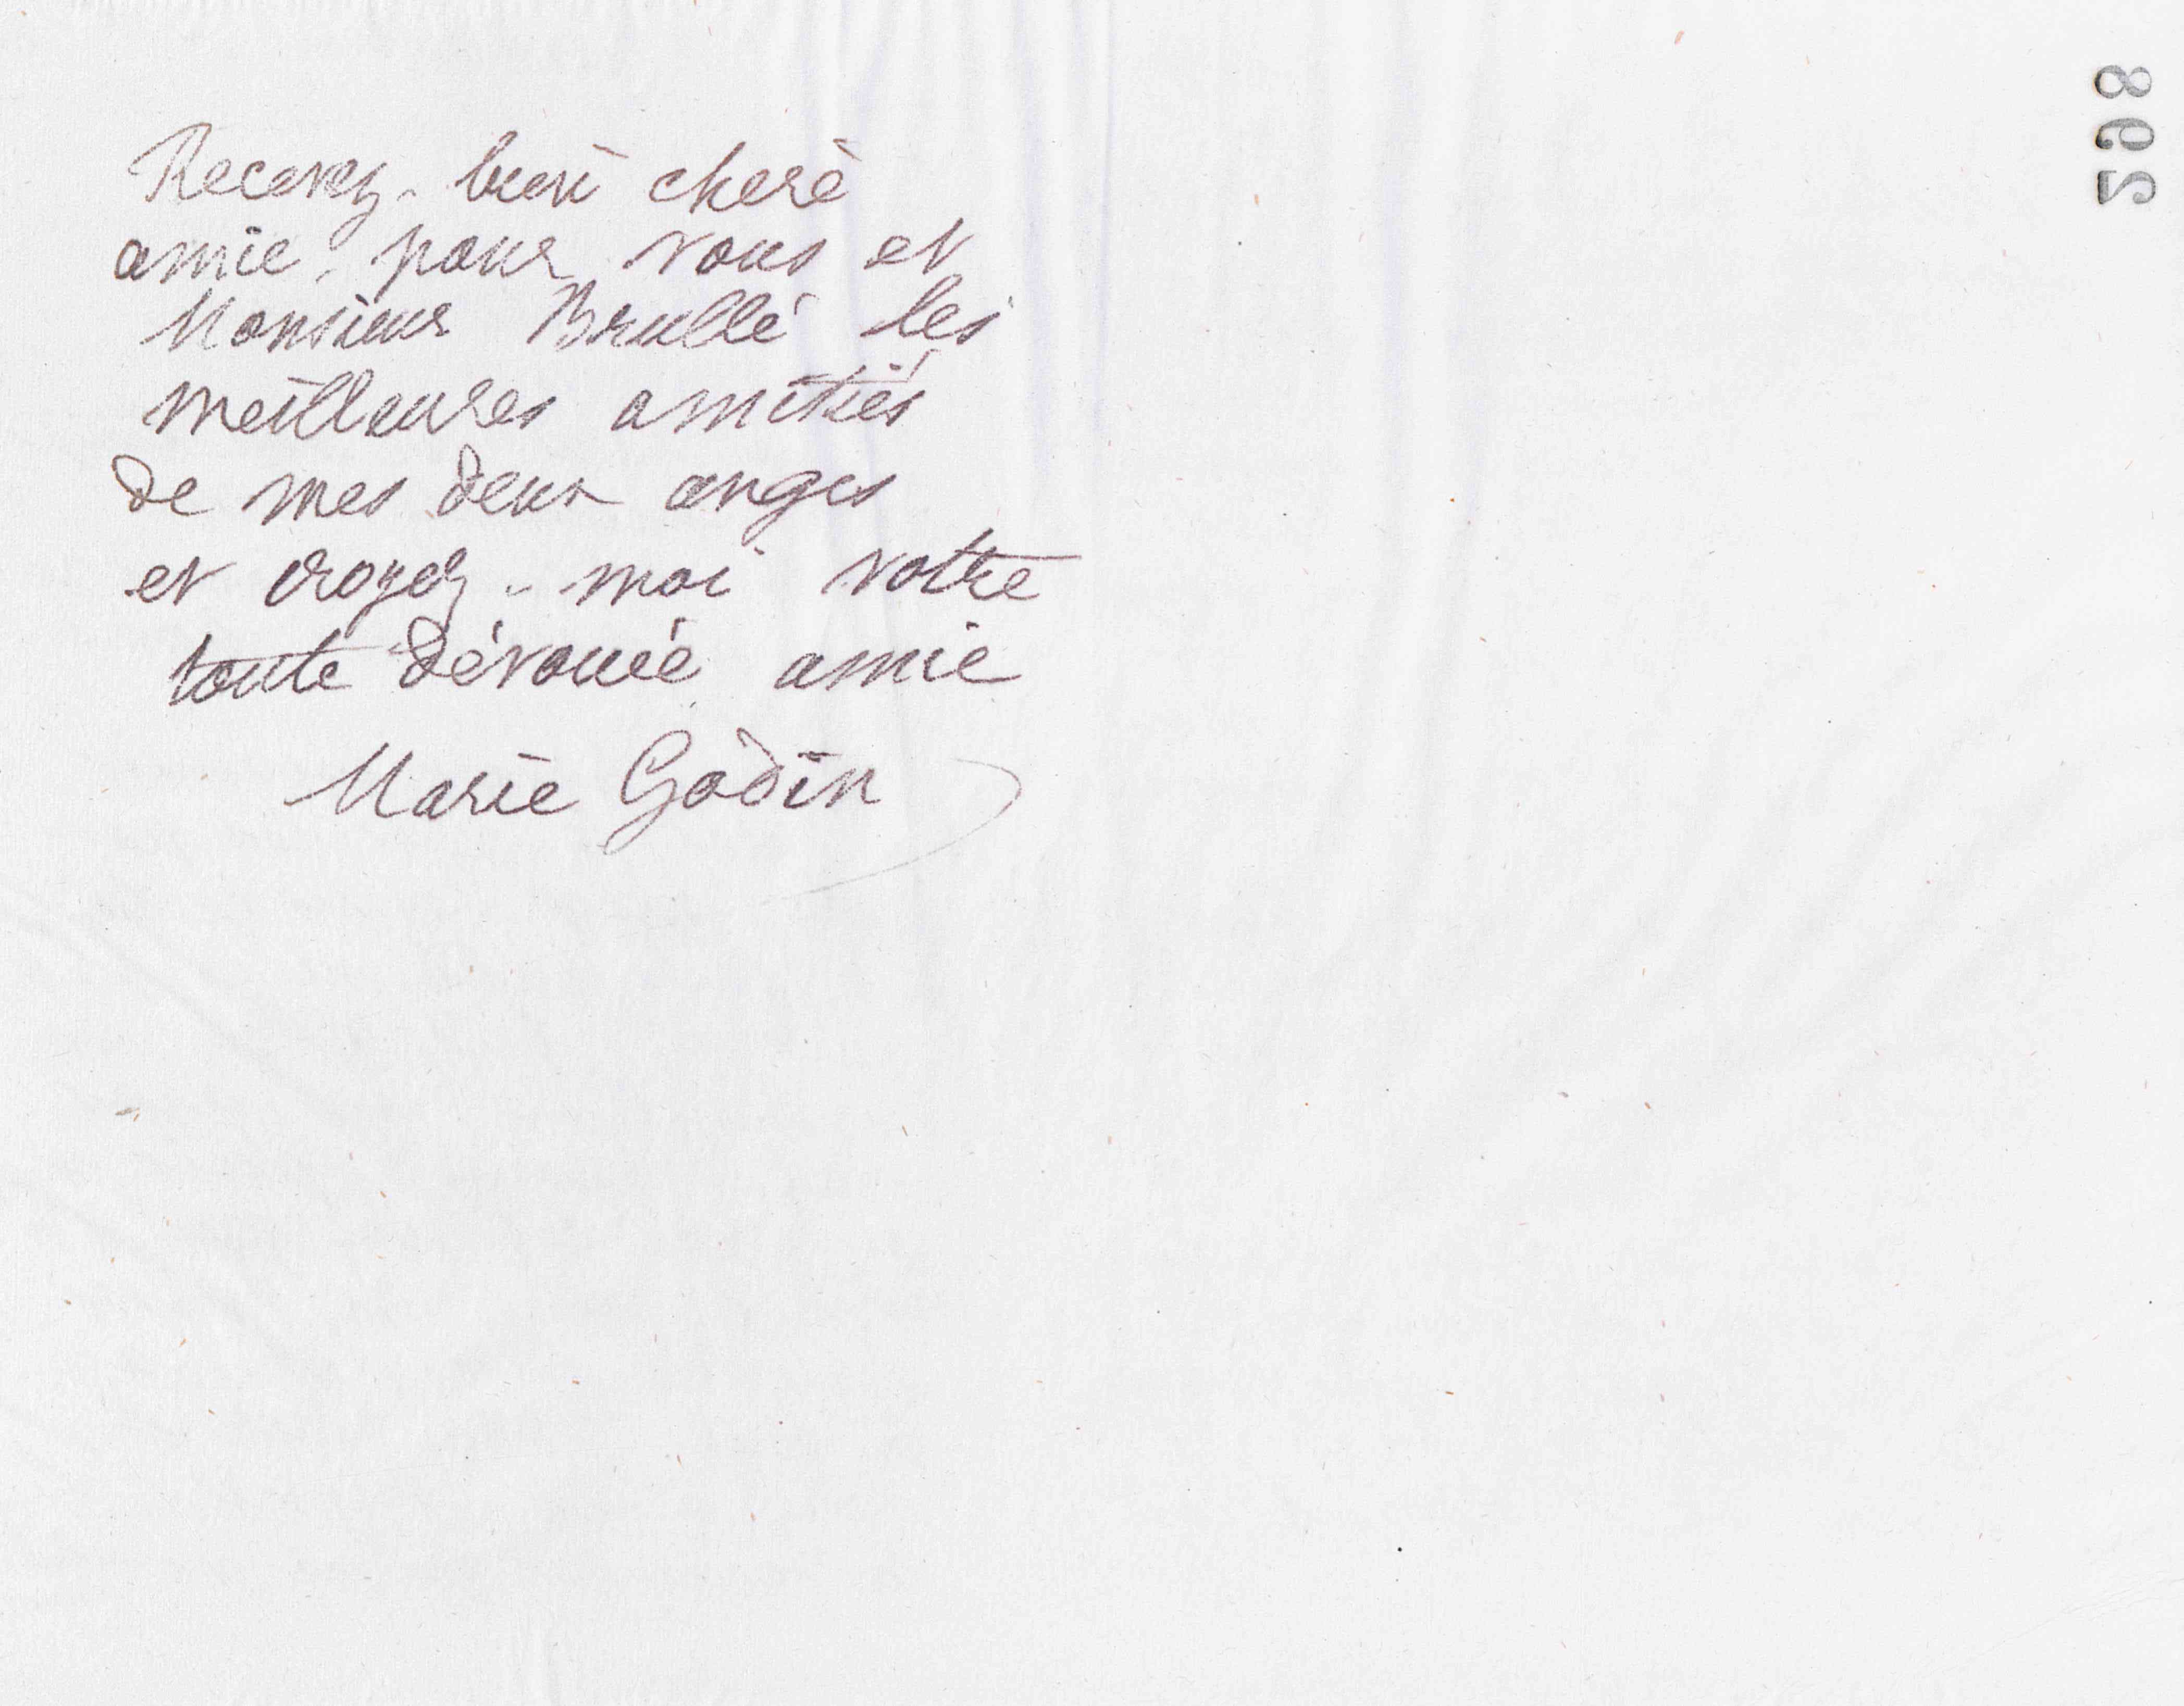 Recevez, bien chère
amie, pour vous et
Monsieur Brullé les
meilleures amitiés
de mes deux anges
et croyez-moi votre
toute dévouée amie
Marie Godin
298